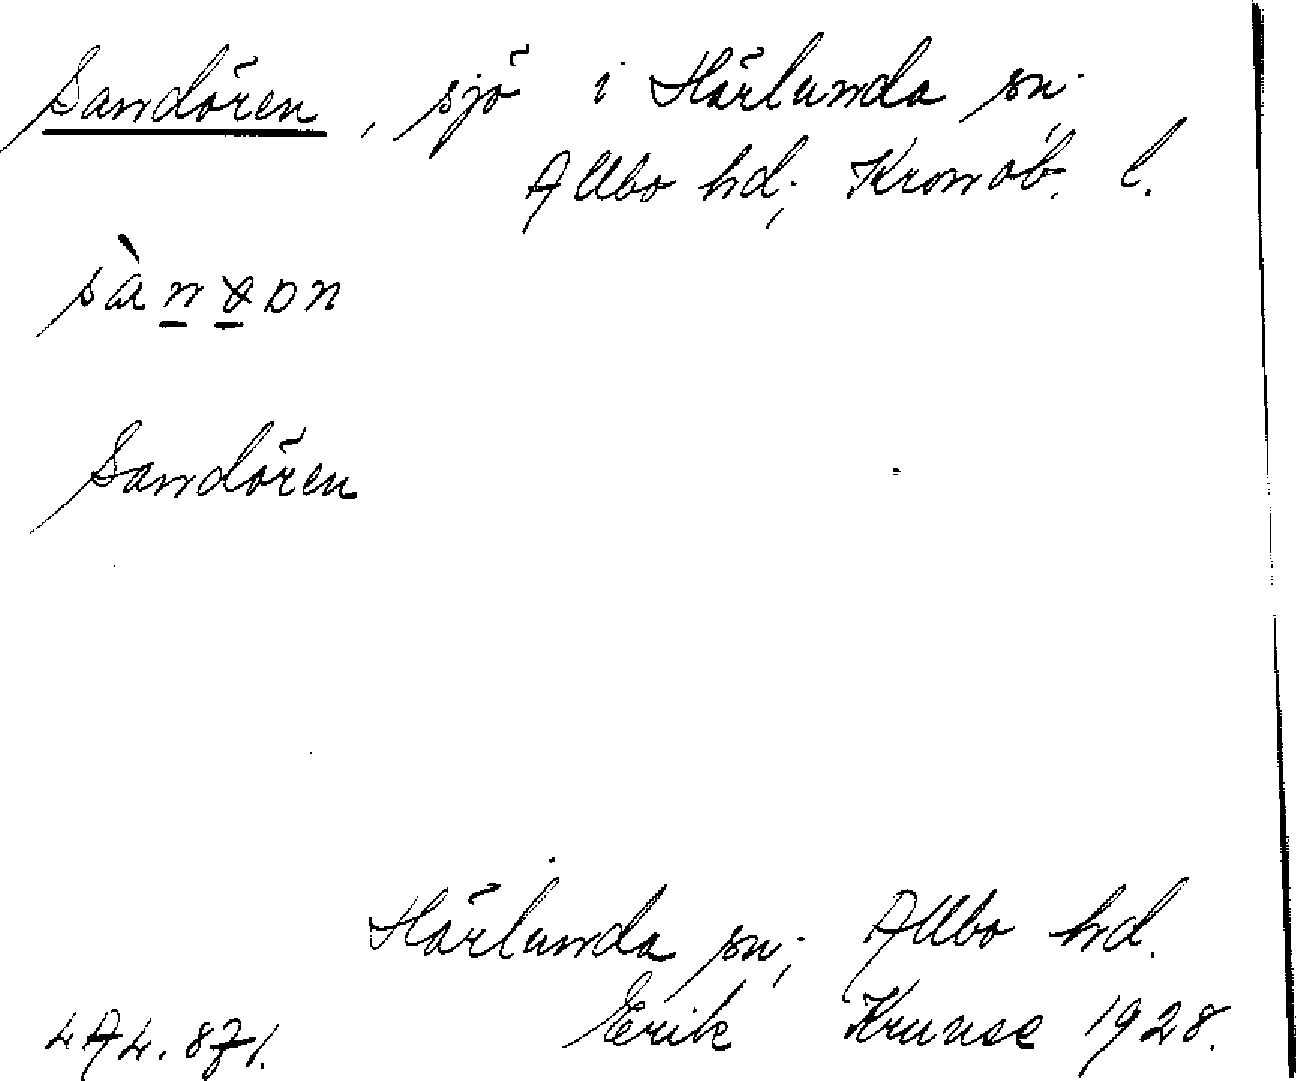 Sandören, sjö i Härlunda sn.
Allbo hd; Kronob. l.
Sandören
Härlunda sn; Allbo hd.
Erik Kruuse 1928.